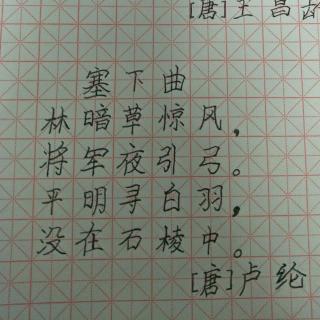 [唐]王昌龄
塞下曲
林暗草惊风，
将军夜引弓。
平明寻白羽，
没在石棱中。
[唐]卢纶